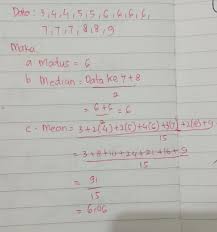 Data : 3,4,4,5,5,6,6,6,6,
7,7,7,8,8,9
Maka
a Modus = 6
b Median = Data ke 7+8
2
= 6+6 = 6
2
c - Mean = 3+2(4)+2(5)+4(6)+3(7)+2(8)+9
15
= 3+8+10+24+21+16+9
15
= 91
15
= 6,06